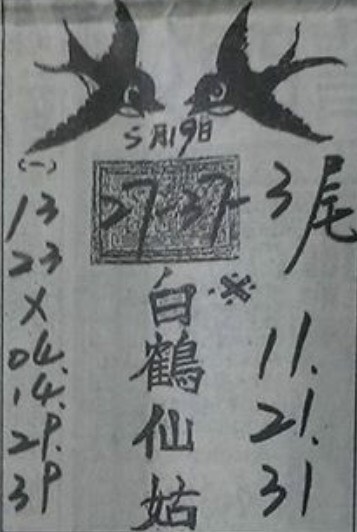 5月19日
(一)
27-37-3尾
13
23
X
04.
14.
29.
39
白鶴仙姑
※
11.
21.
31